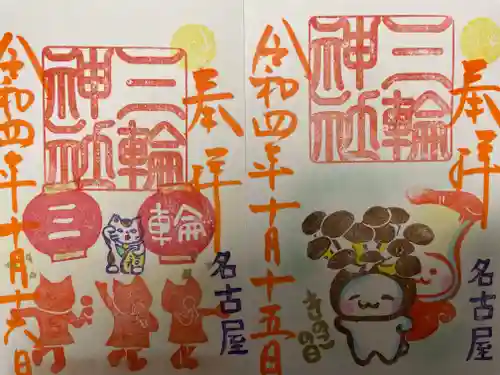 奉拝
三輪
神社
名古屋
きのこの日
令和四年十月十五日
奉拝
三輪
神社
三輪
名古屋
令和四年十月十六日